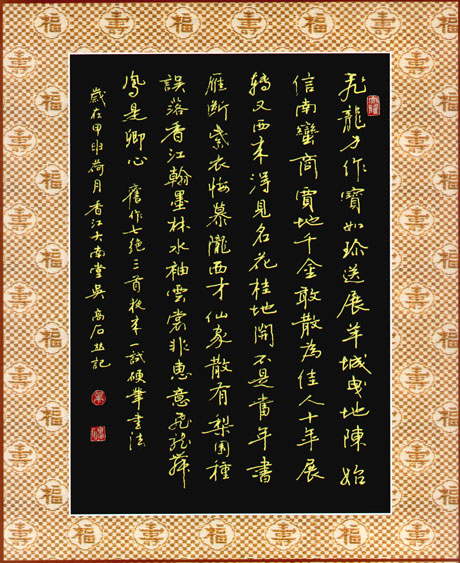 飛龍方作寶如珍送展羊城曳地陳始
信南蠻商賈地千金敢散為佳人十年展
轉又西來得見名花桂地開不是當年書
雁断紫衣悔慕隴西才仙家散有梨園種
誤落香江翰墨林水袖雲裳非惠意飛龍舞
鳳是卿心 舊作七絕三首來一試硬筆書法
歲在甲申荷月香江大南堂吴高石並記